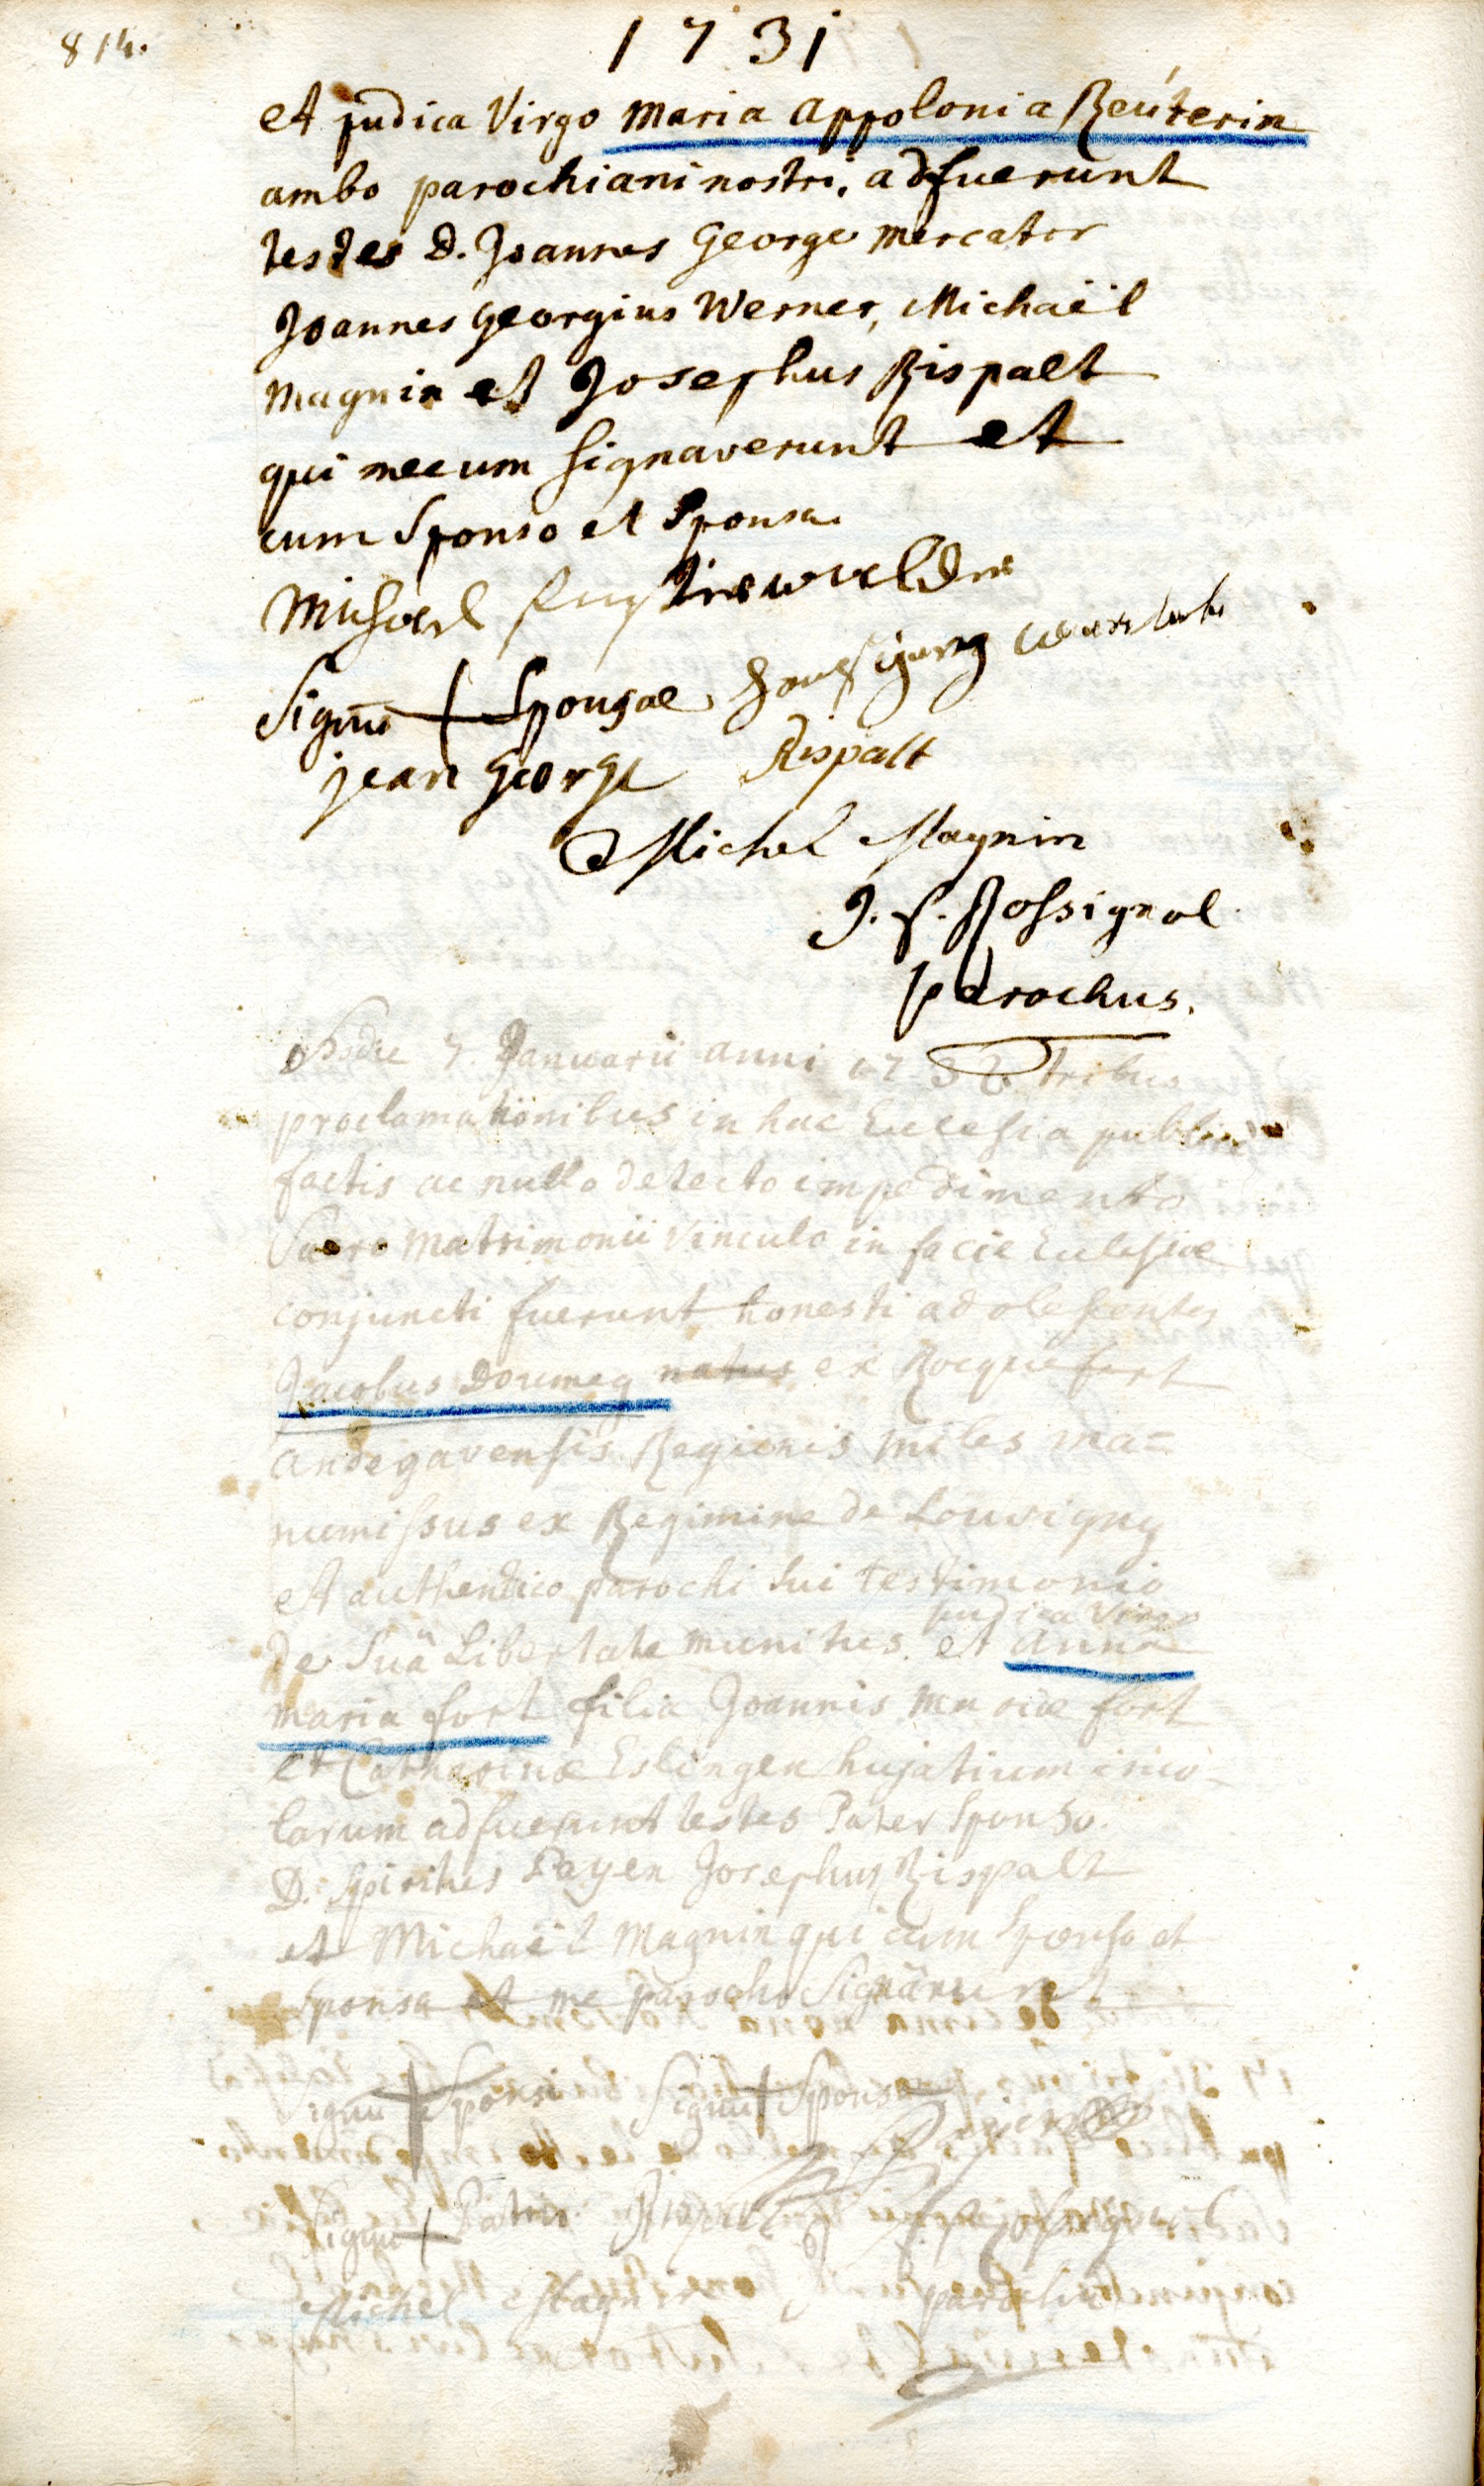 814.
1731
et pudica Virgo Maria Appolonia Reúterin
ambo parochiani nostri, adfuerunt
testes D. Joannes George mercator
Joannes Georgius Werner, Michaël
Magnin et Josephus Rispalt
qui mecum signaverunt et
cum Sponso et Sponsa
Michael
Signū + Sponsae
jean George Rispalt
Michel Magnin
J. f. Rossignol
parochus.
Hodie 7 Januarii anni 1732 tribus
proclamationibus in hac Ecclesia publice
factis ac nullo detecto impedimento
Sacro Matrimonii Vinculo in facie Ecclesiae
conjuncti fuerunt honesti adolescentes
Jacobus Doumeg natus ex Rocquefort
andegavensis Regionis miles ma=
numissus ex Regimine de Louvigny
et authentico parochi sui testimonio
pudica Virgo
de Suâ Libertate munitus. et anna
maria fort filia Joannis Mariae fort
et Catharinae Eslingen hujatium inco-
larum adfuerunt testes Pater Sponsae
D. Spiritus Payen Josephus Rispalt
et Michaël Magnin qui cum Sponso et
Sponsa et me parocho Signârunt
Signū + Sponsi Signū + Sponsae
Signū + Patris Rispalt J. f. Rossignol
Michel Magnin parochus